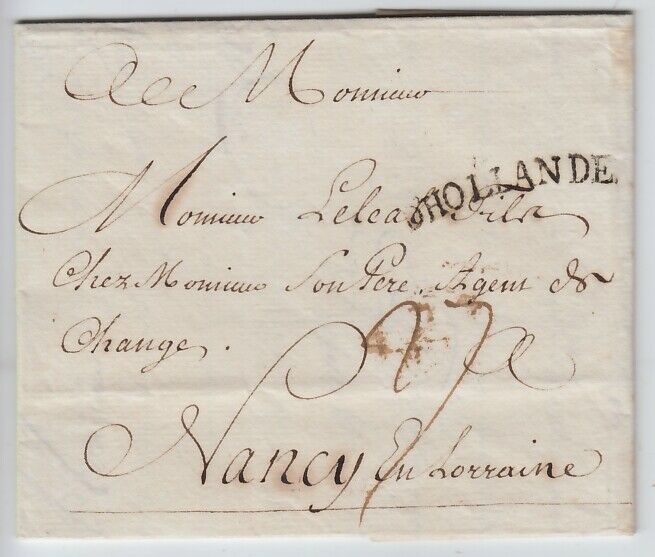 A Monsieur
D'HOLLANDE
Monsieur Lelean fils
Chez Monsieur Son Pere Agent de
Change.
27
Nancy En Lorraine